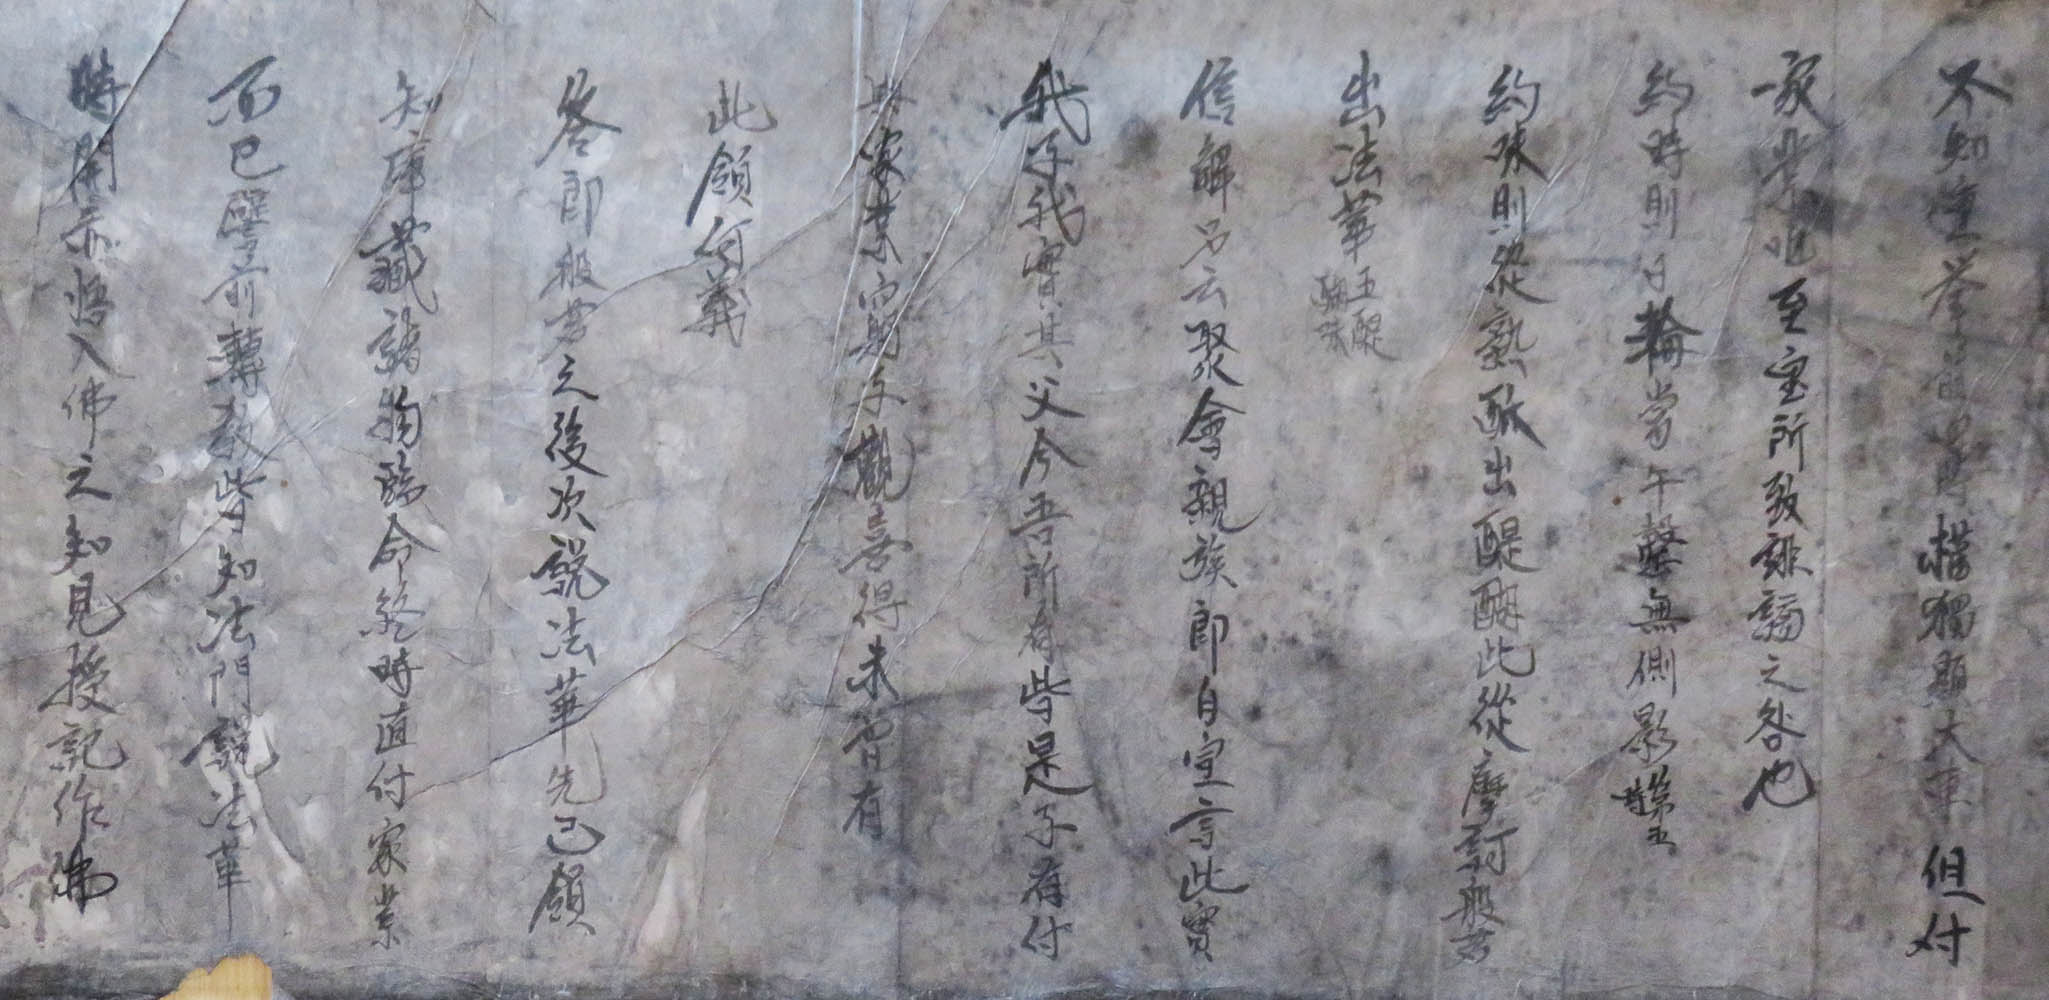 不知童蒙當機獨顯大車但付
家業唯至寶所致誹謗之咎也
約時則日輪當午罄無側影第五時
約味則從熟酥出醍醐此從摩訶般若
出法華五醍醐味
信解品云聚會親族即自宣言此實
我子我實其父今吾所有皆是子有付
與家業窮子歡喜得未曾有
此領何義
答即般若之後次說法華先已領
知庫藏諸物臨命終時直付家業
而已譬前轉教皆知法門說法華
時開示悟入佛之知見授記作佛